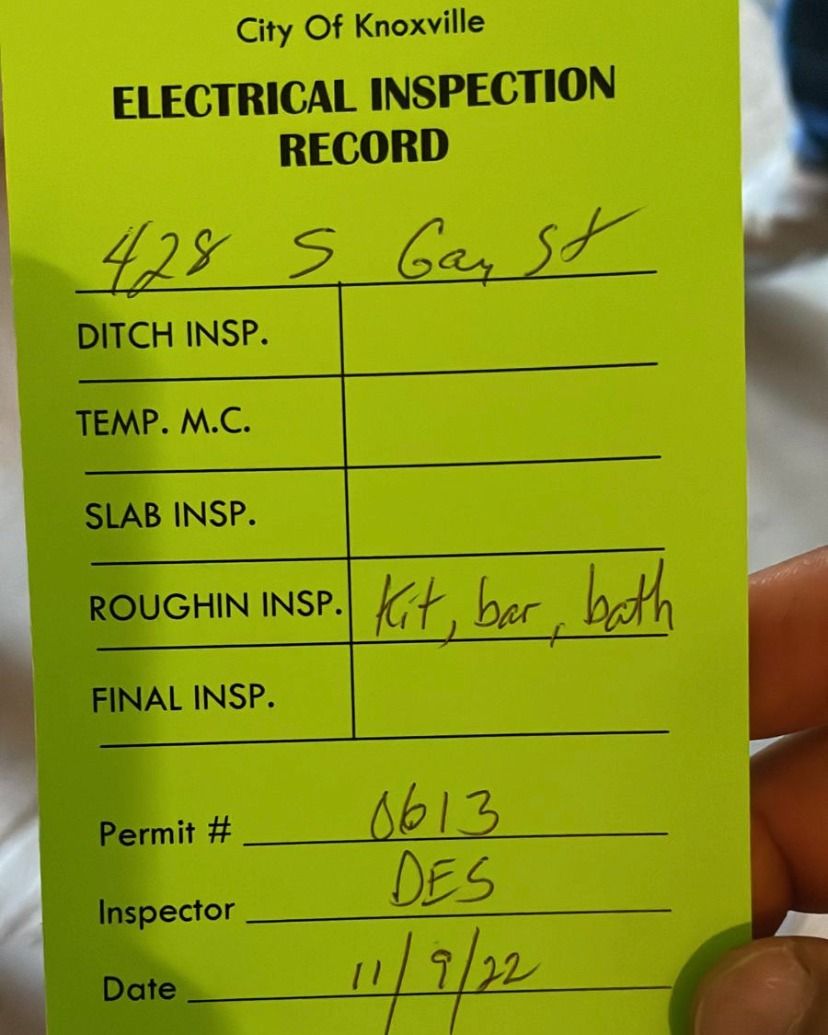 City Of Knoxville
ELECTRICAL INSPECTION
RECORD
428 S Gay St
DITCH INSP.
TEMP. M.C.
SLAB INSP.
ROUGHIN INSP. Kit, bar, bath
FINAL INSP.
Permit # 0613
Inspector DES
Date 11/9/22